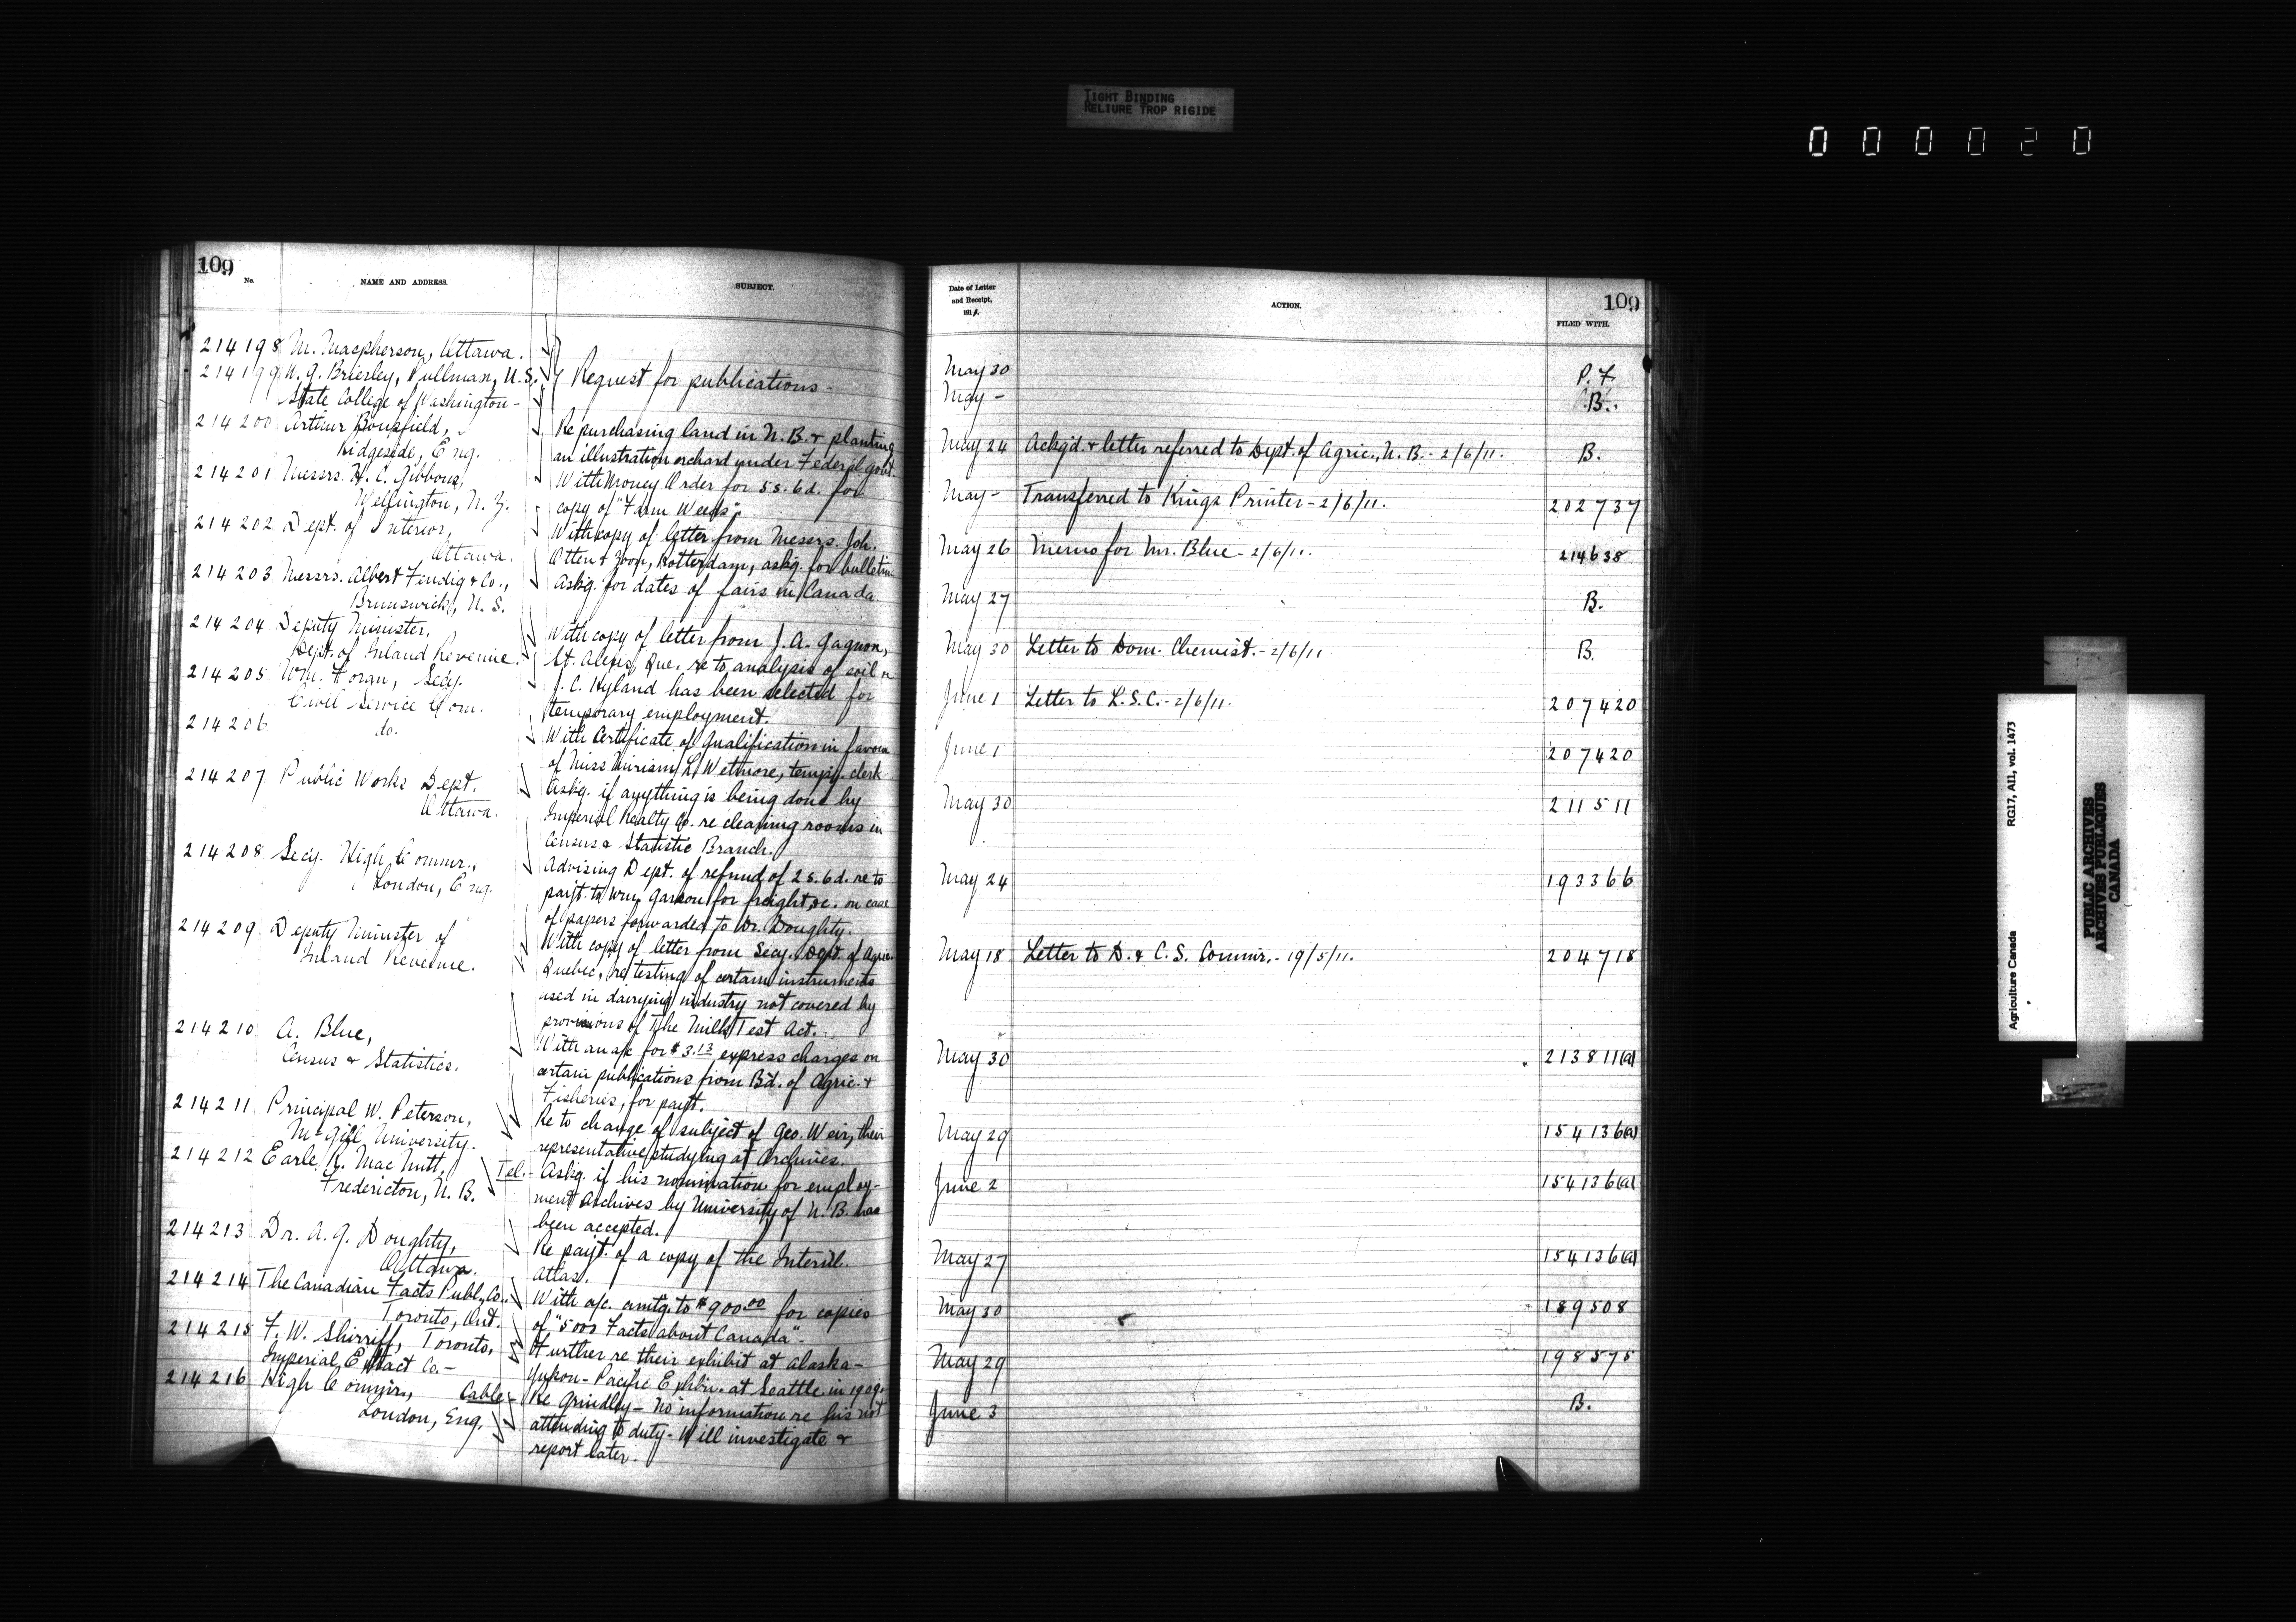 TIGHT BINDING
RELIURE TROP RIGIDE
000020
109
No. NAME AND ADDRESS. SUBJECT.
214198 M. Macpherson, Ottawa.
214199 W. G. Brierley, Pullman, U.S. Request for publications -
State College of Washington -
214200 Arthur Bousfield, Re purchasing land in N.B. & planting
Ridgeside, Eng. an illustration orchard under Federal Govt.
214201 Messrs. H. C. Gibbons, With Money Order for 5s. 6d. for
Wellington, N. Z. copy of "Farm Weeds".
214202 Dept. of Interior, With copy of letter from Messrs. Joh.
Ottawa. Otten & Zoon, Rotterdam, askg. for bulletin
214203 Messrs. Albert Fendig & Co., Askg. for dates of fairs in Canada
Brunswick, U. S.
214204 Deputy Minister, With copy of letter from J. A. Gagnon,
Dept. of Inland Revenue. St. Alexis, Que. re to analysis of soil
214205 Wm. Foran, Secy. J. C. Hyland has been selected for
Civil Service Com. temporary employment.
214206 do. With Certificate of Qualification in favour
of Miss Miriam L. Wetmore, tempy. clerk
214207 Public Works Dept. Askg. if anything is being done by
Ottawa. Imperial Realty Co. re cleaning rooms in
Census & Statistic Branch.
214208 Secy. High Commr., Advising Dept. of refund of 2s. 6d. re to
London, Eng. payt. to Wm. for freight, &c. on case
of papers forwarded to Dr. Doughty.
214209 Deputy Minister of With copy of letter from Secy. Dept. of Agric.
Inland Revenue. Quebec, re testing of certain instruments
used in dairying industry not covered by
provisions of the Milk Test Act.
214210 A. Blue, With an a/c for $3.13 express charges on
Census & Statistics. certain publications from Bd. of Agric. &
Fisheries, for payt.
214211 Principal W. Peterson, Re to change of subject of Geo. Weir, their
McGill University. representative studying at Archives.
214212 Earle R. MacNutt, Tel. - Askg. if his nomination for employ-
Fredericton, N. B. ment Archives by University of N. B. has
been accepted.
214213 Dr. A. G. Doughty, Re payt. of a copy of the
Ottawa. Atlas.
214214 The Canadian Facts Publ. Co. With a/c. amtg. to $900.00 for copies
Toronto, Ont. of "5000 Facts about Canada" -
214215 F. W. Shirriff, Toronto, Further re their exhibit at Alaska-
Imperial Extract Co. - Yukon - Pacific Exhbn. at Seattle in 1909.
214216 High Commr., Cable - Re Grindley - No information re his not
London, Eng. attending to duty - Will investigate &
report later.
109
Date of Letter
and Receipt,
1911.
ACTION. FILED WITH.
May 30 P. F.
May - B.
May 24 Ackgd. & letter referred to Dept. of Agric., N. B. - 2/6/11. B.
May - Transferred to Kings Printer - 2/6/11. 202737
May 26 Memo for Mr. Blue - 2/6/11. 214638
May 27 B.
May 30 Letter to Dom. Chemist. - 2/6/11 B.
June 1 Letter to L. S. C. - 2/6/11. 207420
June 1 207420
May 30 211511
May 24 193366
May 18 Letter to D. & C. S. Commr. - 19/5/11. 204718
May 30 213811(a)
May 29 154136(a)
June 2 154136(a)
May 27 154136(a)
May 30 189508
May 29 198575
June 3 B.
Agriculture Canada RG17, AII, vol. 1473
PUBLIC ARCHIVES
ARCHIVES PUBLIQUES
CANADA